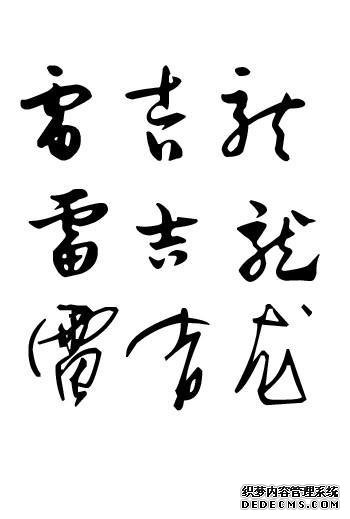 雷吉龙
雷吉龙
雷吉龙
织梦内容管理系统
DEDECMS.COM